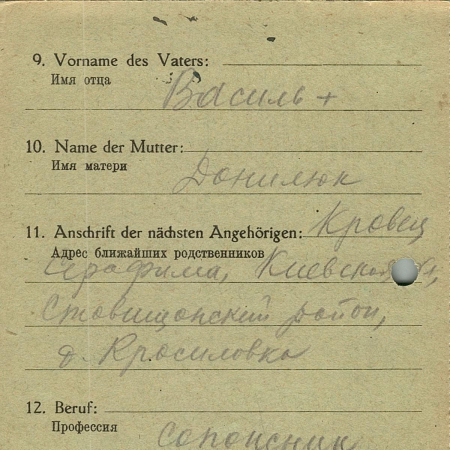 9. Vorname des Vaters:
Имя отца
Василь +
10. Name der Mutter:
Имя матери
Донилюк
11. Anschrift der nächsten Angehörigen: Кровец
Адрес ближайших родственников
Серафима, Киевской
Ставищанский район,
д. Красиловка
12. Beruf:
Профессия